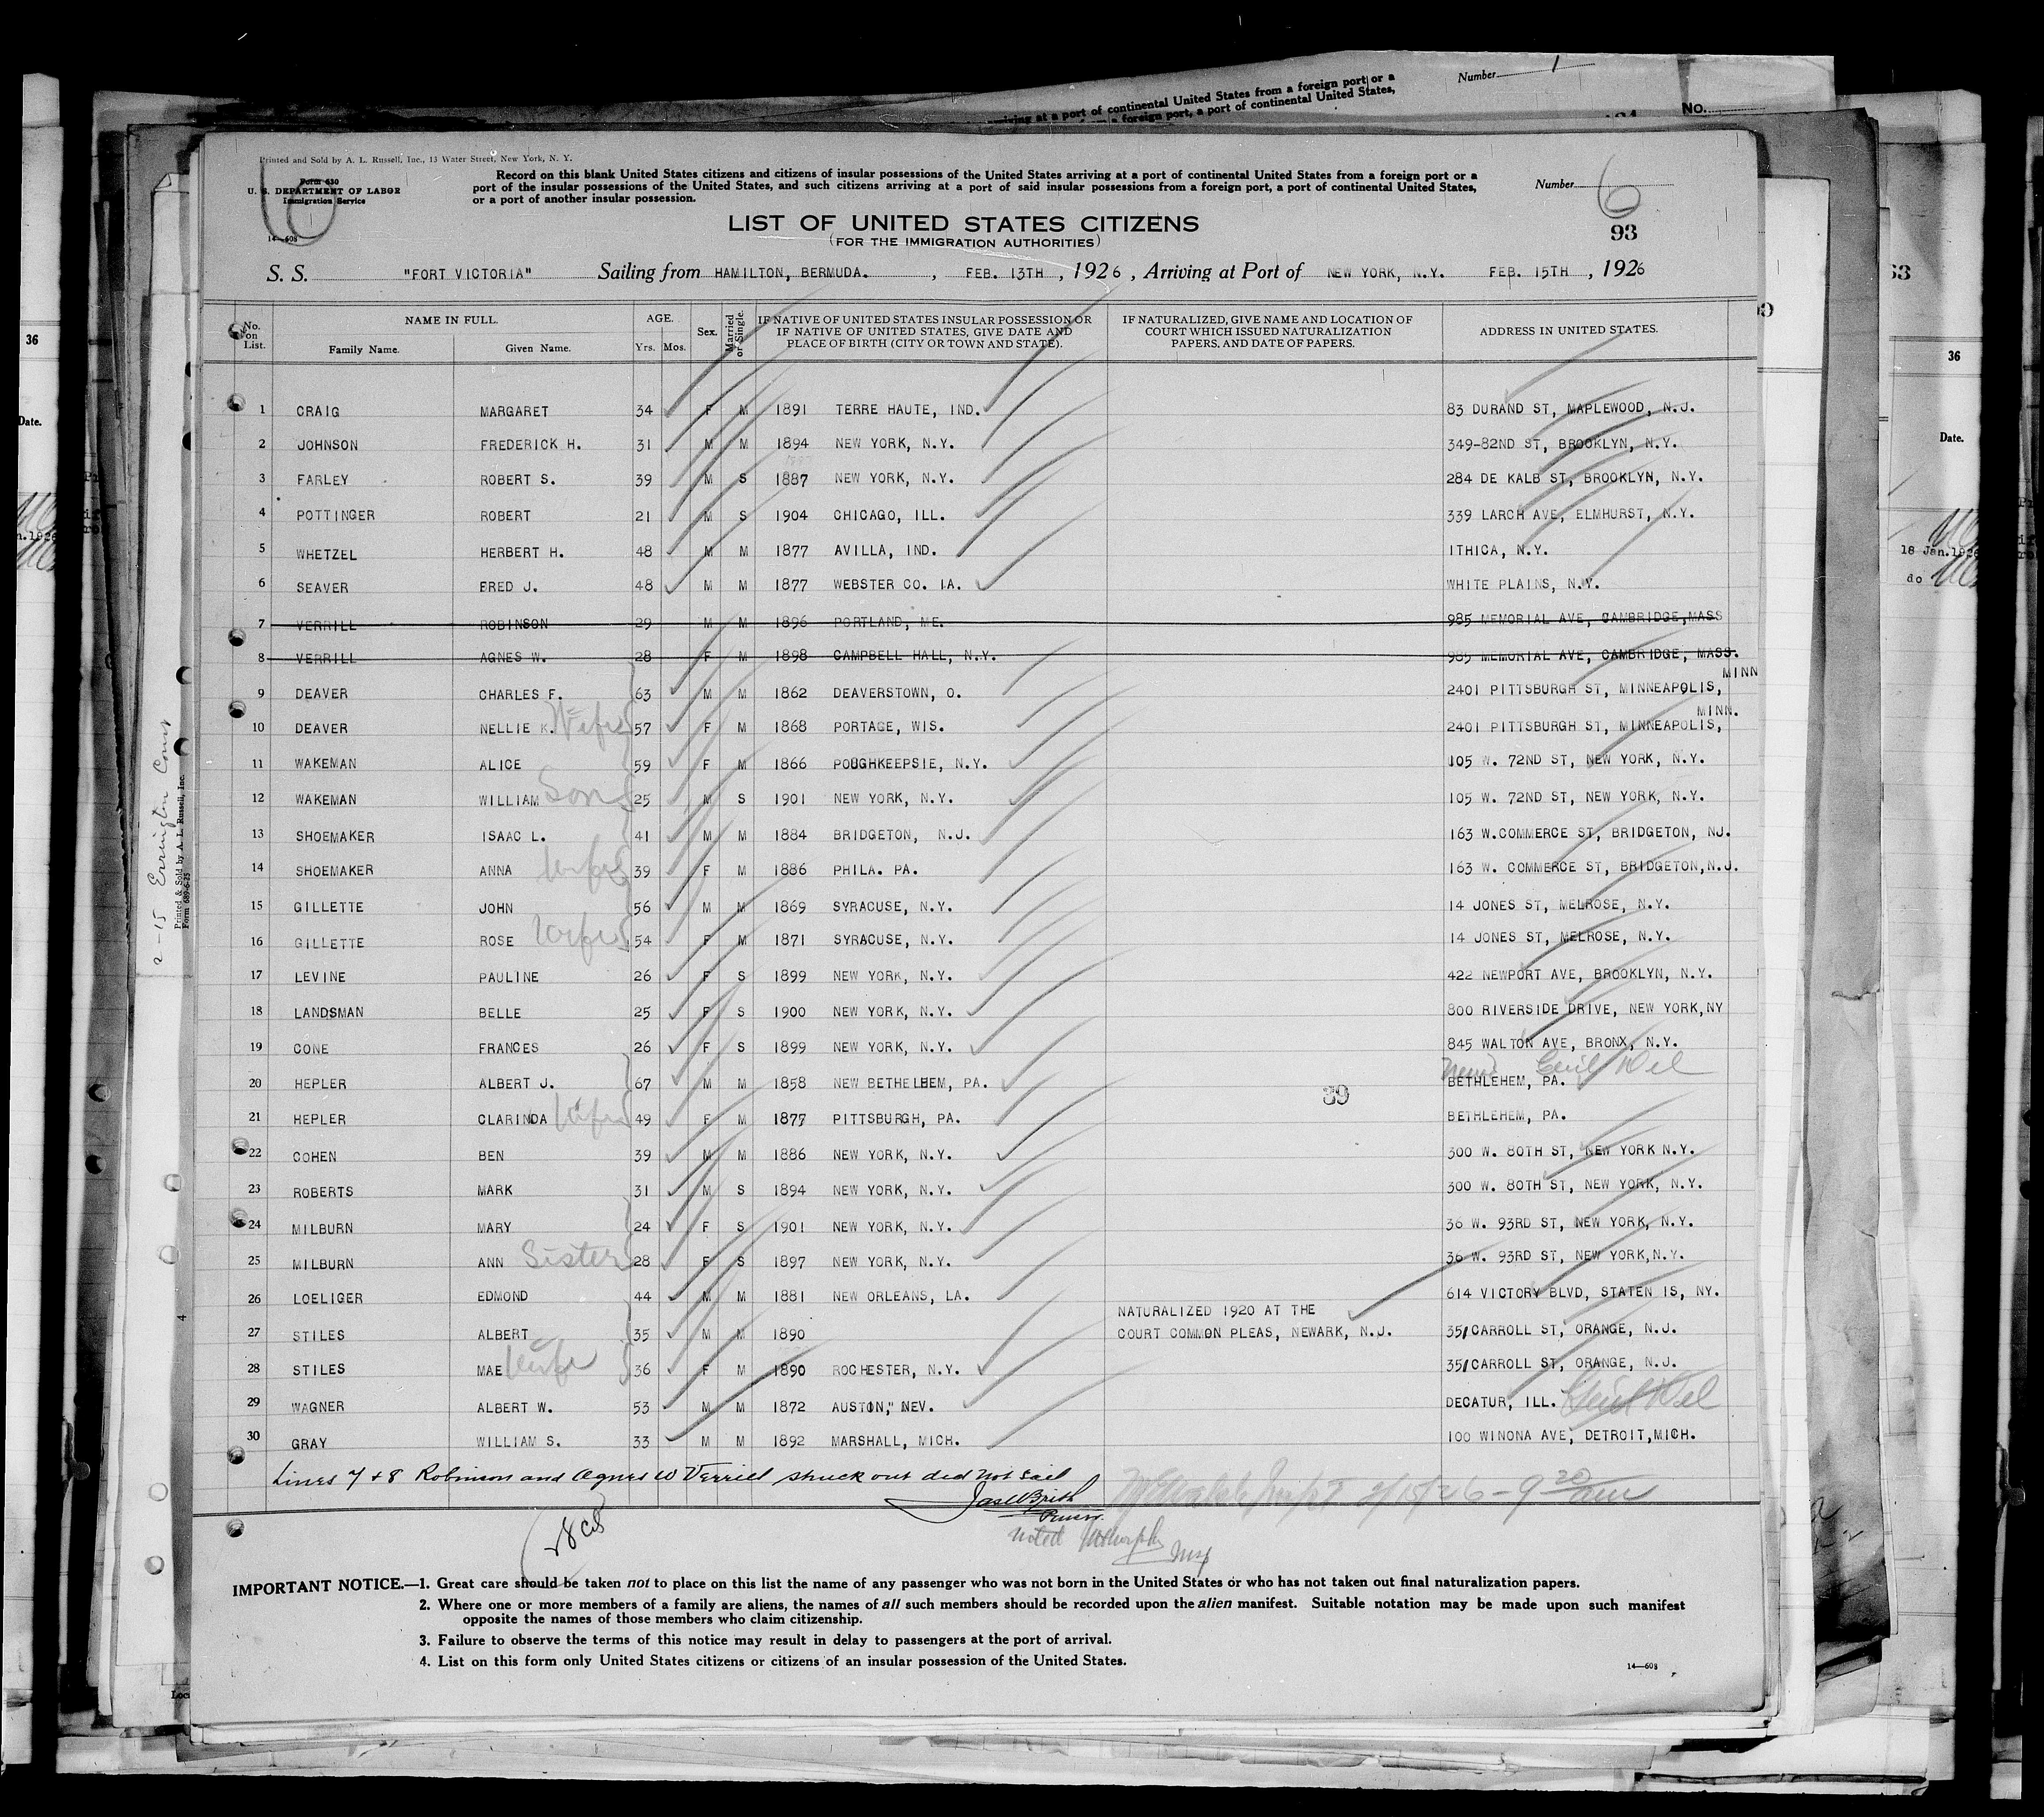 Number 1
iving at a port of continental United States from a foreign port or a
a foreign port, a port of continental United States,
No.
Printed and Sold by A. L. Russell, Inc., 13 Water Street, New York, N. Y.
Form 630
U. S. DEPARTMENT OF LABOR
Immigration Service
14—608
6
Record on this blank United States citizens and citizens of insular possessions of the United States arriving at a port of continental United States from a foreign port or a
port of the insular possessions of the United States, and such citizens arriving at a port of said insular possessions from a foreign port, a port of continental United States,
or a port of another insular possession.
Number 6
93
LIST OF UNITED STATES CITIZENS
(FOR THE IMMIGRATION AUTHORITIES)
S. S. "FORT VICTORIA" Sailing from HAMILTON, BERMUDA. , FEB. 13TH , 1926 , Arriving at Port of NEW YORK, N.Y. FEB. 15TH , 1926
No. on List. NAME IN FULL. Family Name. Given Name. AGE. Yrs. Mos. Sex. Married or Single. IF NATIVE OF UNITED STATES INSULAR POSSESSION OR IF NATIVE OF UNITED STATES, GIVE DATE AND PLACE OF BIRTH (CITY OR TOWN AND STATE). IF NATURALIZED, GIVE NAME AND LOCATION OF COURT WHICH ISSUED NATURALIZATION PAPERS, AND DATE OF PAPERS. ADDRESS IN UNITED STATES.
1 CRAIG MARGARET 34 F M 1891 TERRE HAUTE, IND. 83 DURAND ST, MAPLEWOOD, N.J.
2 JOHNSON FREDERICK H. 31 M M 1894 NEW YORK, N.Y. 349-82ND ST, BROOKLYN, N.Y.
3 FARLEY ROBERT S. 39 M S 1887 NEW YORK, N.Y. 284 DE KALB ST, BROOKLYN, N.Y.
4 POTTINGER ROBERT 21 M S 1904 CHICAGO, ILL. 339 LARCH AVE, ELMHURST, N.Y.
5 WHETZEL HERBERT H. 48 M M 1877 AVILLA, IND. ITHICA, N.Y.
6 SEAVER FRED J. 48 M M 1877 WEBSTER CO. IA. WHITE PLAINS, N.Y.
7 VERRILL ROBINSON 29 M M 1896 PORTLAND, ME. 985 MEMORIAL AVE, CAMBRIDGE,MASS
8 VERRILL AGNES W. 28 F M 1898 CAMPBELL HALL, N.Y. 985 MEMORIAL AVE, CAMBRIDGE, MASS.
9 DEAVER CHARLES F. 63 M M 1862 DEAVERSTOWN, O. 2401 PITTSBURGH ST, MINNEAPOLIS, MINN
10 DEAVER NELLIE K. Wife 57 F M 1868 PORTAGE, WIS. 2401 PITTSBURGH ST, MINNEAPOLIS, MINN.
11 WAKEMAN ALICE 59 F M 1866 POUGHKEEPSIE, N.Y. 105 W. 72ND ST, NEW YORK, N.Y.
12 WAKEMAN WILLIAM Son 25 M S 1901 NEW YORK, N.Y. 105 W. 72ND ST, NEW YORK, N.Y.
13 SHOEMAKER ISAAC L. 41 M M 1884 BRIDGETON, N.J. 163 W.COMMERCE ST, BRIDGETON, NJ.
14 SHOEMAKER ANNA Wife 39 F M 1886 PHILA. PA. 163 W. COMMERCE ST, BRIDGETON,N.J.
15 GILLETTE JOHN 56 M M 1869 SYRACUSE, N.Y. 14 JONES ST, MELROSE, N.Y.
16 GILLETTE ROSE Wife 54 F M 1871 SYRACUSE, N.Y. 14 JONES ST, MELROSE, N.Y.
17 LEVINE PAULINE 26 F S 1899 NEW YORK, N.Y. 422 NEWPORT AVE, BROOKLYN, N.Y.
18 LANDSMAN BELLE 25 F S 1900 NEW YORK, N.Y. 800 RIVERSIDE DRIVE, NEW YORK,NY
19 CONE FRANCES 26 F S 1899 NEW YORK, N.Y. 845 WALTON AVE, BRONX, N.Y.
20 HEPLER ALBERT J. 67 M M 1858 NEW BETHELHEM, PA. BETHLEHEM, PA.
39
21 HEPLER CLARINDA Wife 49 F M 1877 PITTSBURGH, PA. BETHLEHEM, PA.
22 COHEN BEN 39 M M 1886 NEW YORK, N.Y. 300 W. 80TH ST, NEW YORK N.Y.
23 ROBERTS MARK 31 M S 1894 NEW YORK, N.Y. 300 W. 80TH ST, NEW YORK, N.Y.
24 MILBURN MARY 24 F S 1901 NEW YORK, N.Y. 36 W. 93RD ST, NEW YORK, N.Y.
25 MILBURN ANN Sister 28 F S 1897 NEW YORK, N.Y. 36 W. 93RD ST, NEW YORK,N.Y.
26 LOELIGER EDMOND 44 M M 1881 NEW ORLEANS, LA. 614 VICTORY BLVD, STATEN IS, NY.
27 STILES ALBERT 35 M M 1890 NATURALIZED 1920 AT THE COURT COMMON PLEAS, NEWARK, N.J. 351 CARROLL ST, ORANGE, N.J.
28 STILES MAE Wife 36 F M 1890 ROCHESTER, N.Y. 351 CARROLL ST, ORANGE, N.J.
29 WAGNER ALBERT W. 53 M M 1872 AUSTIN," NEV. DECATUR, ILL.
30 GRAY WILLIAM S. 33 M M 1892 MARSHALL, MICH. 100 WINONA AVE, DETROIT,MICH.
Lines 7 + 8 Robinson and Agnes W Verrill struck out did not sail
Purser.
2/15/26 - 9 20
28 cit
noted
IMPORTANT NOTICE.—1. Great care should be taken not to place on this list the name of any passenger who was not born in the United States or who has not taken out final naturalization papers.
2. Where one or more members of a family are aliens, the names of all such members should be recorded upon the alien manifest. Suitable notation may be made upon such manifest
opposite the names of those members who claim citizenship.
3. Failure to observe the terms of this notice may result in delay to passengers at the port of arrival.
4. List on this form only United States citizens or citizens of an insular possession of the United States.
14—608
2-15 Errington Court
Printed & Sold by A. L. Russell, Inc.
Form 689-6-25
4
36
Date.
36
Date.
18 Jan.1926
do